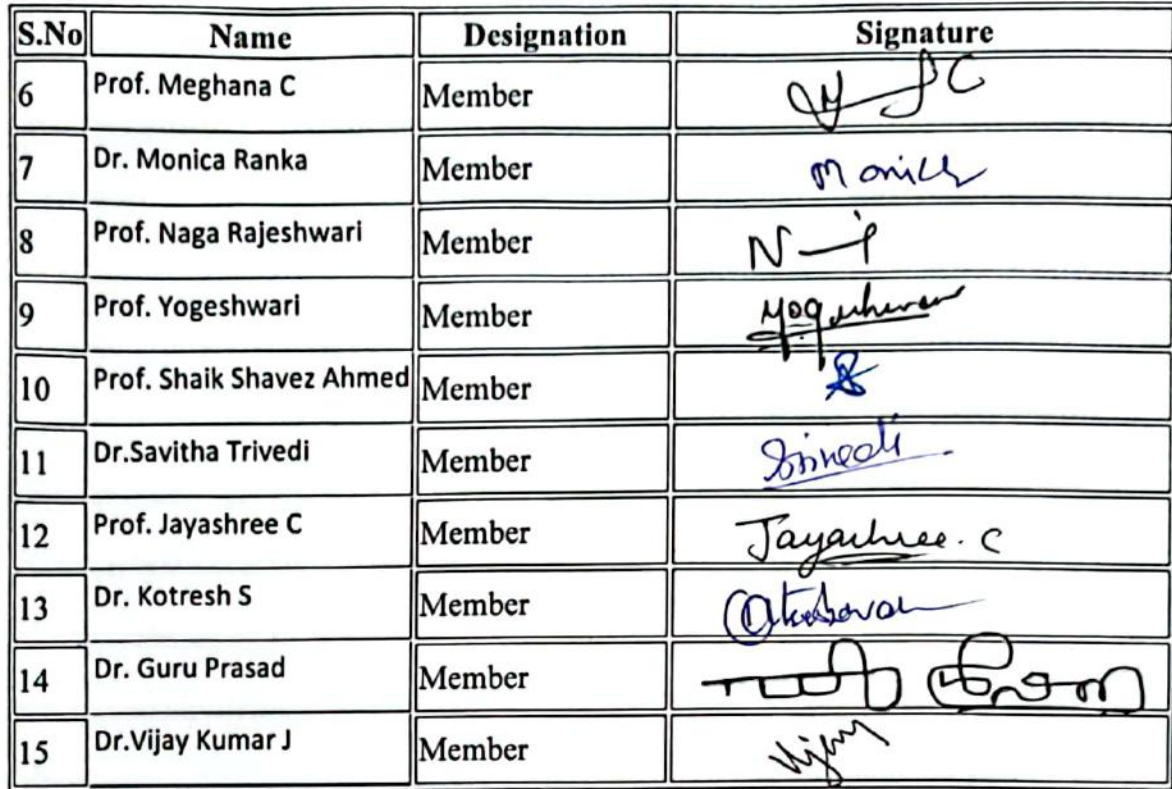 S.No Name Designation Signature
6 Prof. Meghana C Member
7 Dr. Monica Ranka Member
8 Prof. Naga Rajeshwari Member
9 Prof. Yogeshwari Member
10 Prof. Shaik Shavez Ahmed Member
11 Dr.Savitha Trivedi Member
12 Prof. Jayashree C Member Jayashree. C
13 Dr. Kotresh S Member
14 Dr. Guru Prasad Member
15 Dr.Vijay Kumar J Member Vijay